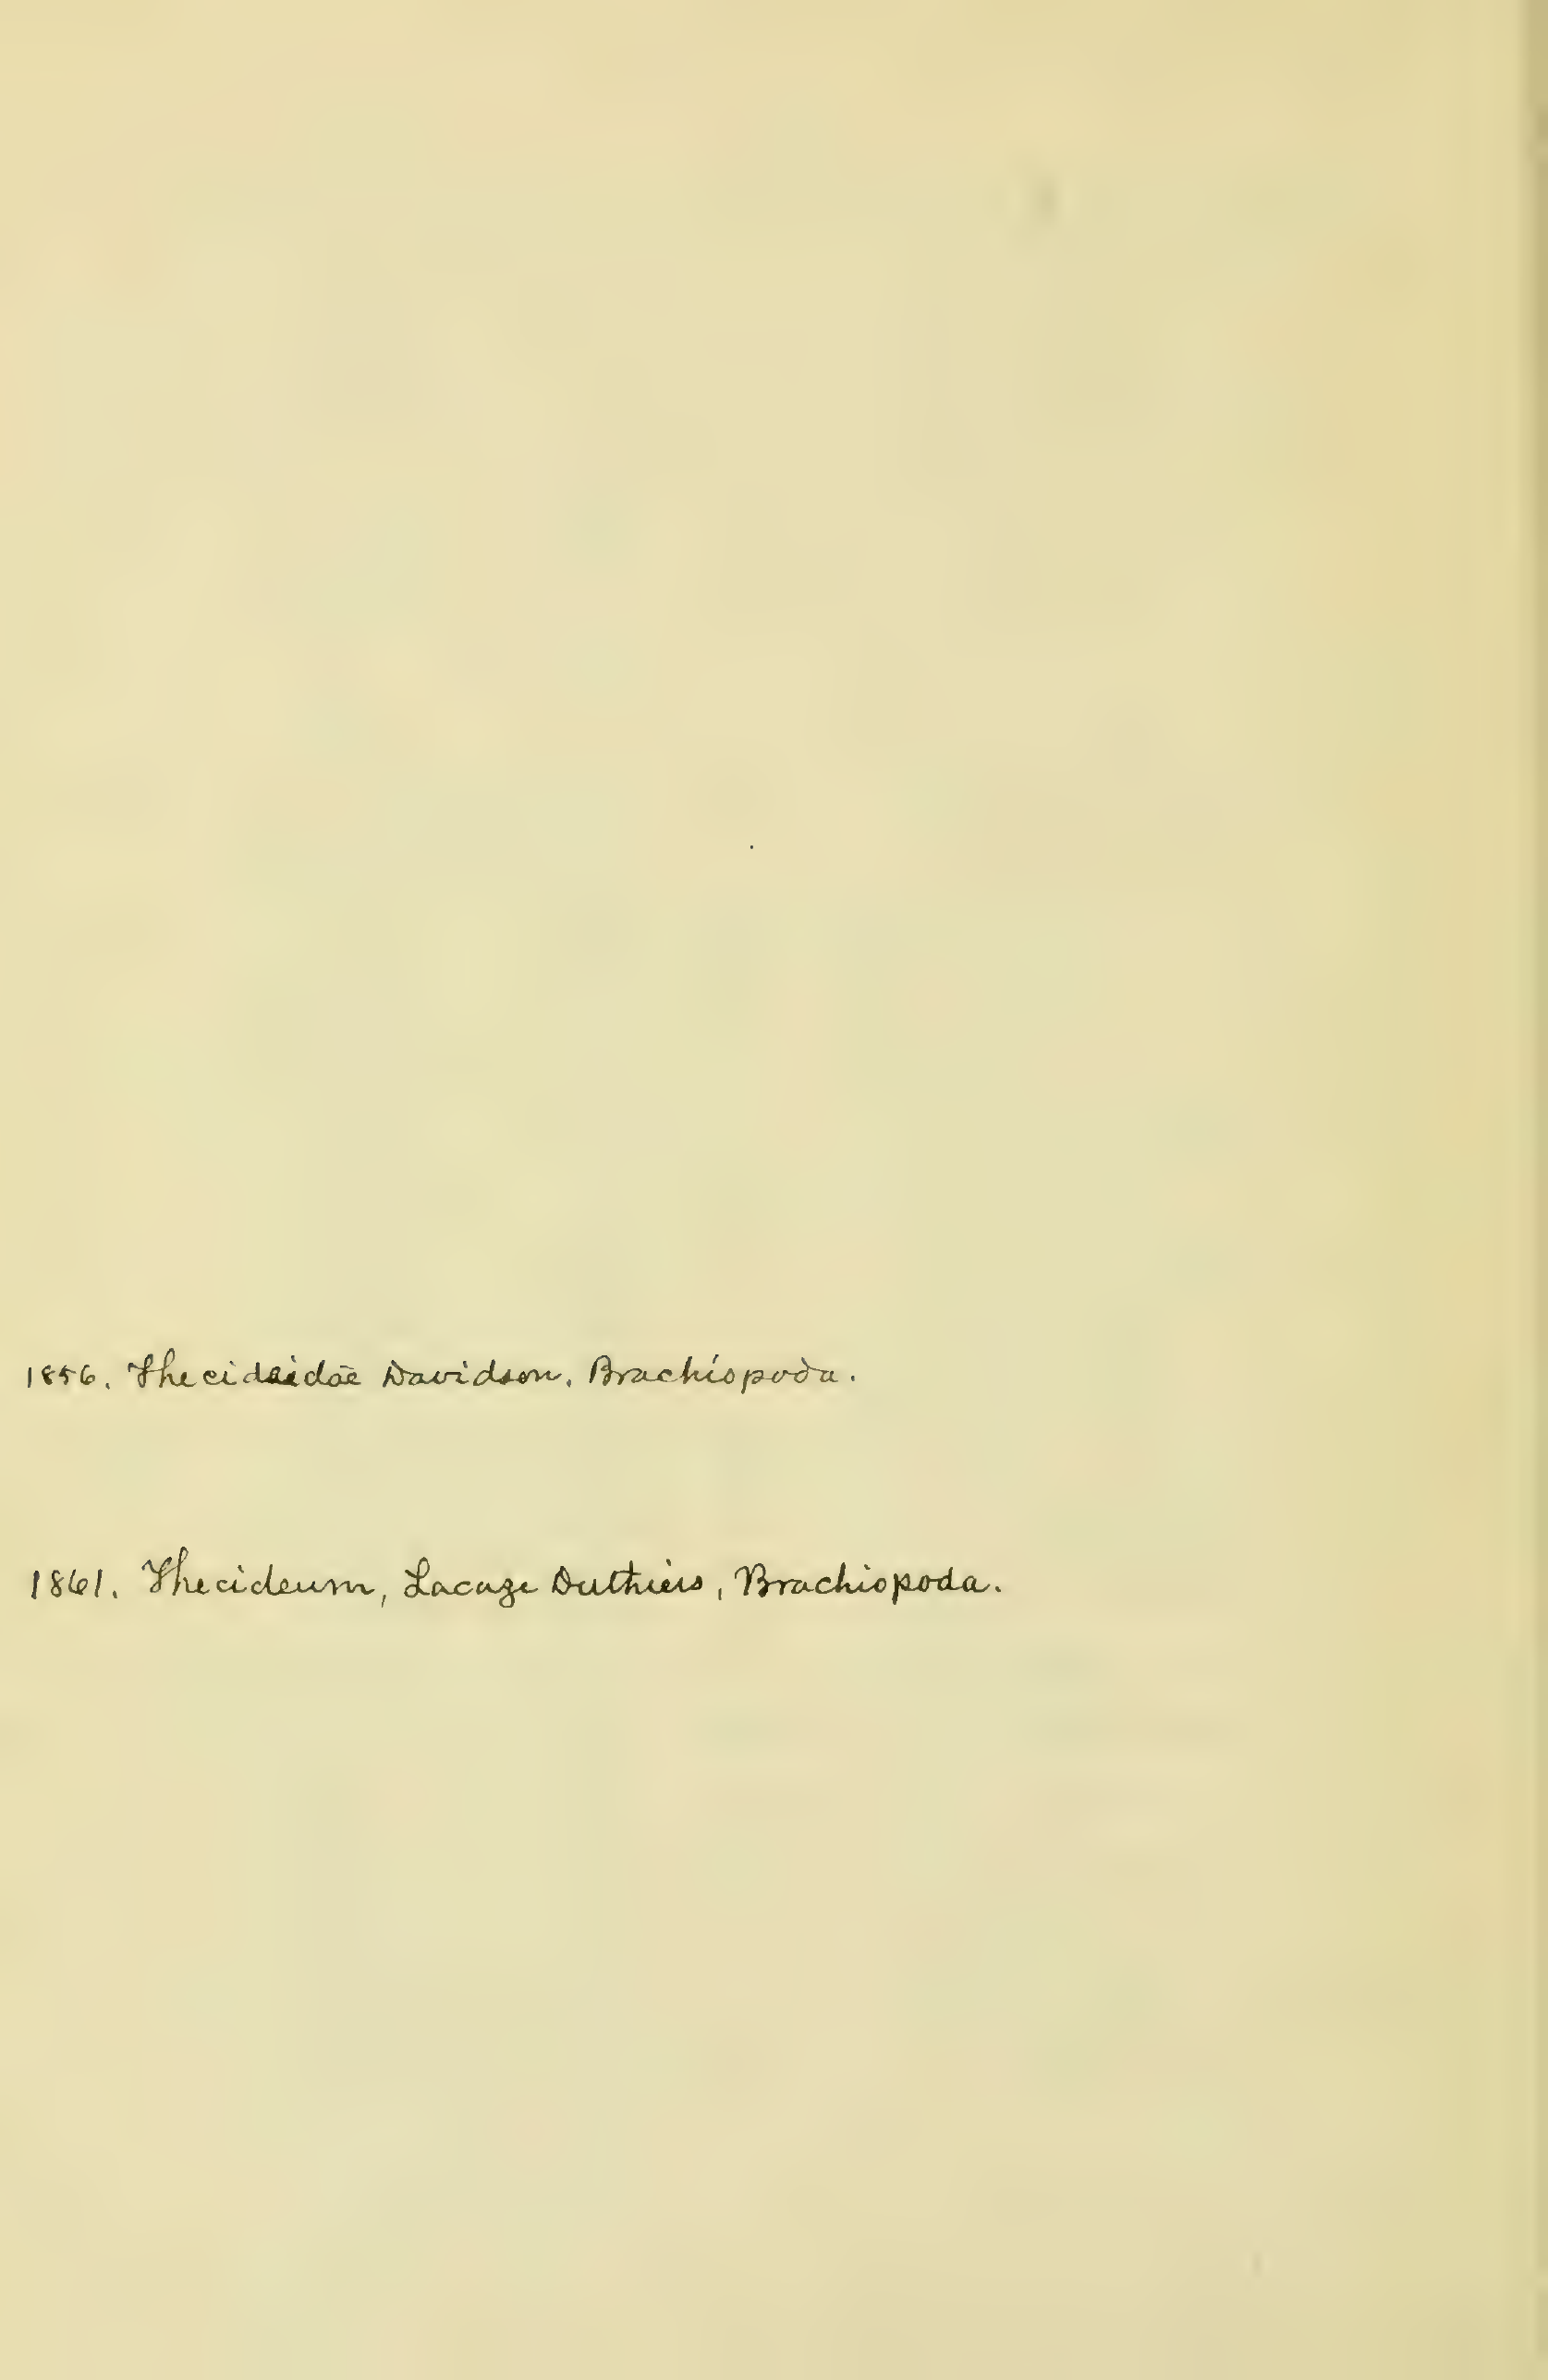 1856. Thecideidae Davidson. Brachiopoda.
1861. Thecideum, Lacaze Duthiers, Brachiopoda.